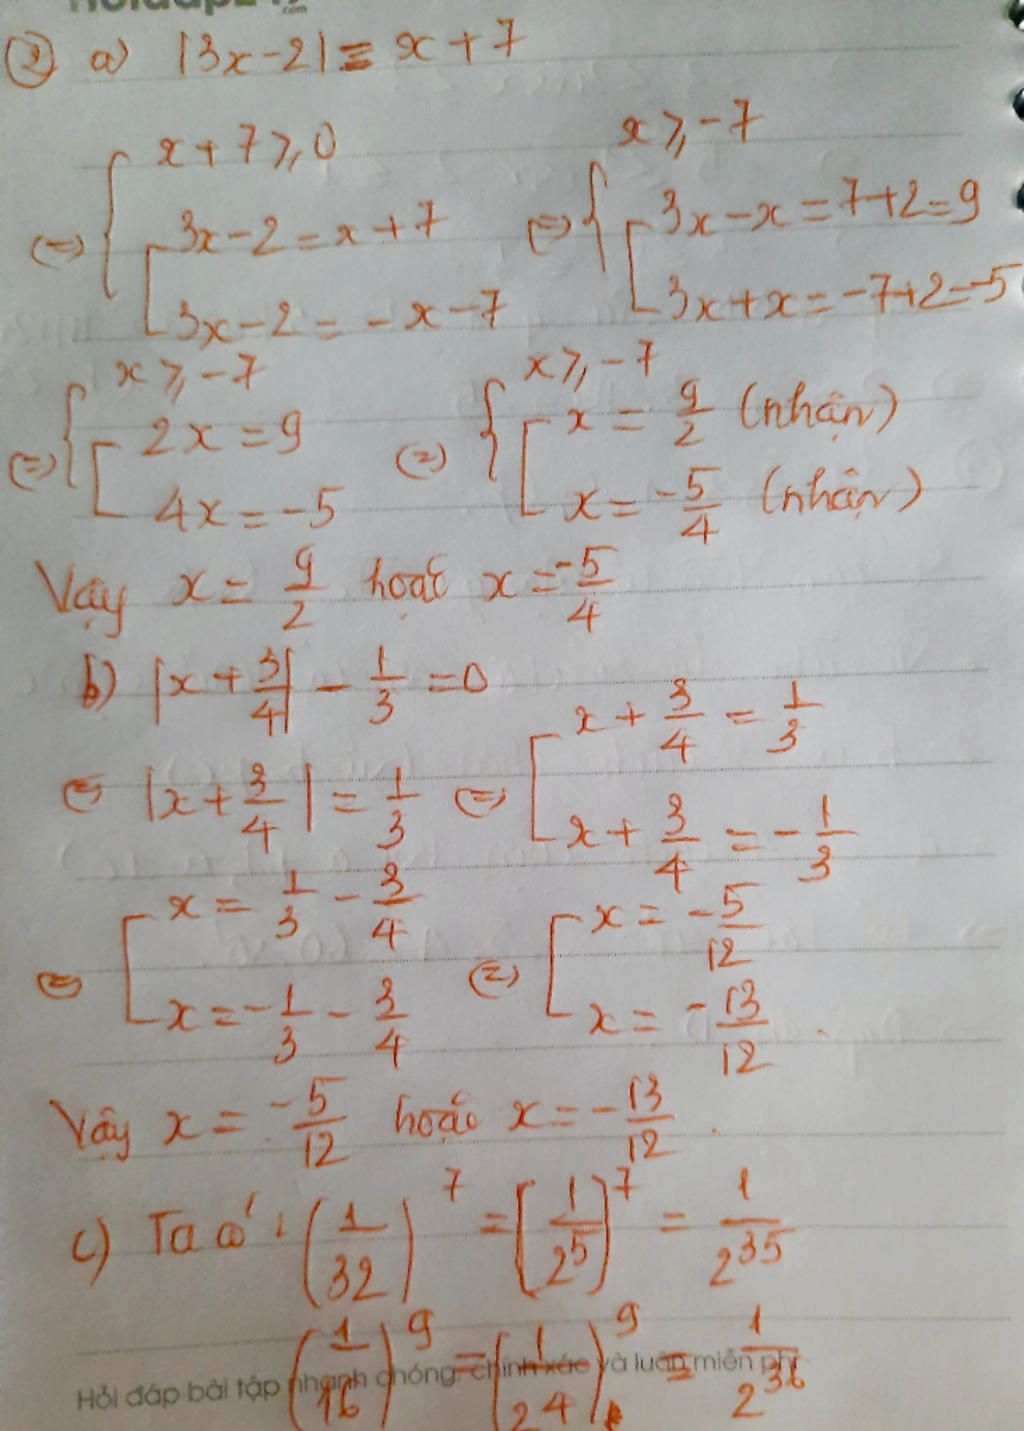 Hoidap247
.com
② a) |3x-2| = x+7
⇔ { x+7 ≥ 0 [ 3x-2 = x+7 3x-2 = -x-7 ⇔ { x ≥ -7 [ 3x-x = 7+2 = 9 3x+x = -7+2 = -5
⇔ { x ≥ -7 [ 2x = 9 4x = -5 ⇔ { x ≥ -7 [ x = 9/2 (nhận) x = -5/4 (nhận)
Vậy x = 9/2 hoặc x = -5/4
b) |x + 3/4| - 1/3 = 0
⇔ |x + 3/4| = 1/3 ⇔ [ x + 3/4 = 1/3 x + 3/4 = -1/3
⇔ [ x = 1/3 - 3/4 x = -1/3 - 3/4 ⇔ [ x = -5/12 x = -13/12.
Vậy x = -5/12 hoặc x = -13/12.
c) Ta có: (1/32)^7 = (1/2^5)^7 = 1/2^35
(1/16)^9 = (1/2^4)^9 = 1/2^36
Hỏi đáp bài tập nhanh chóng, chính xác và luôn miễn phí